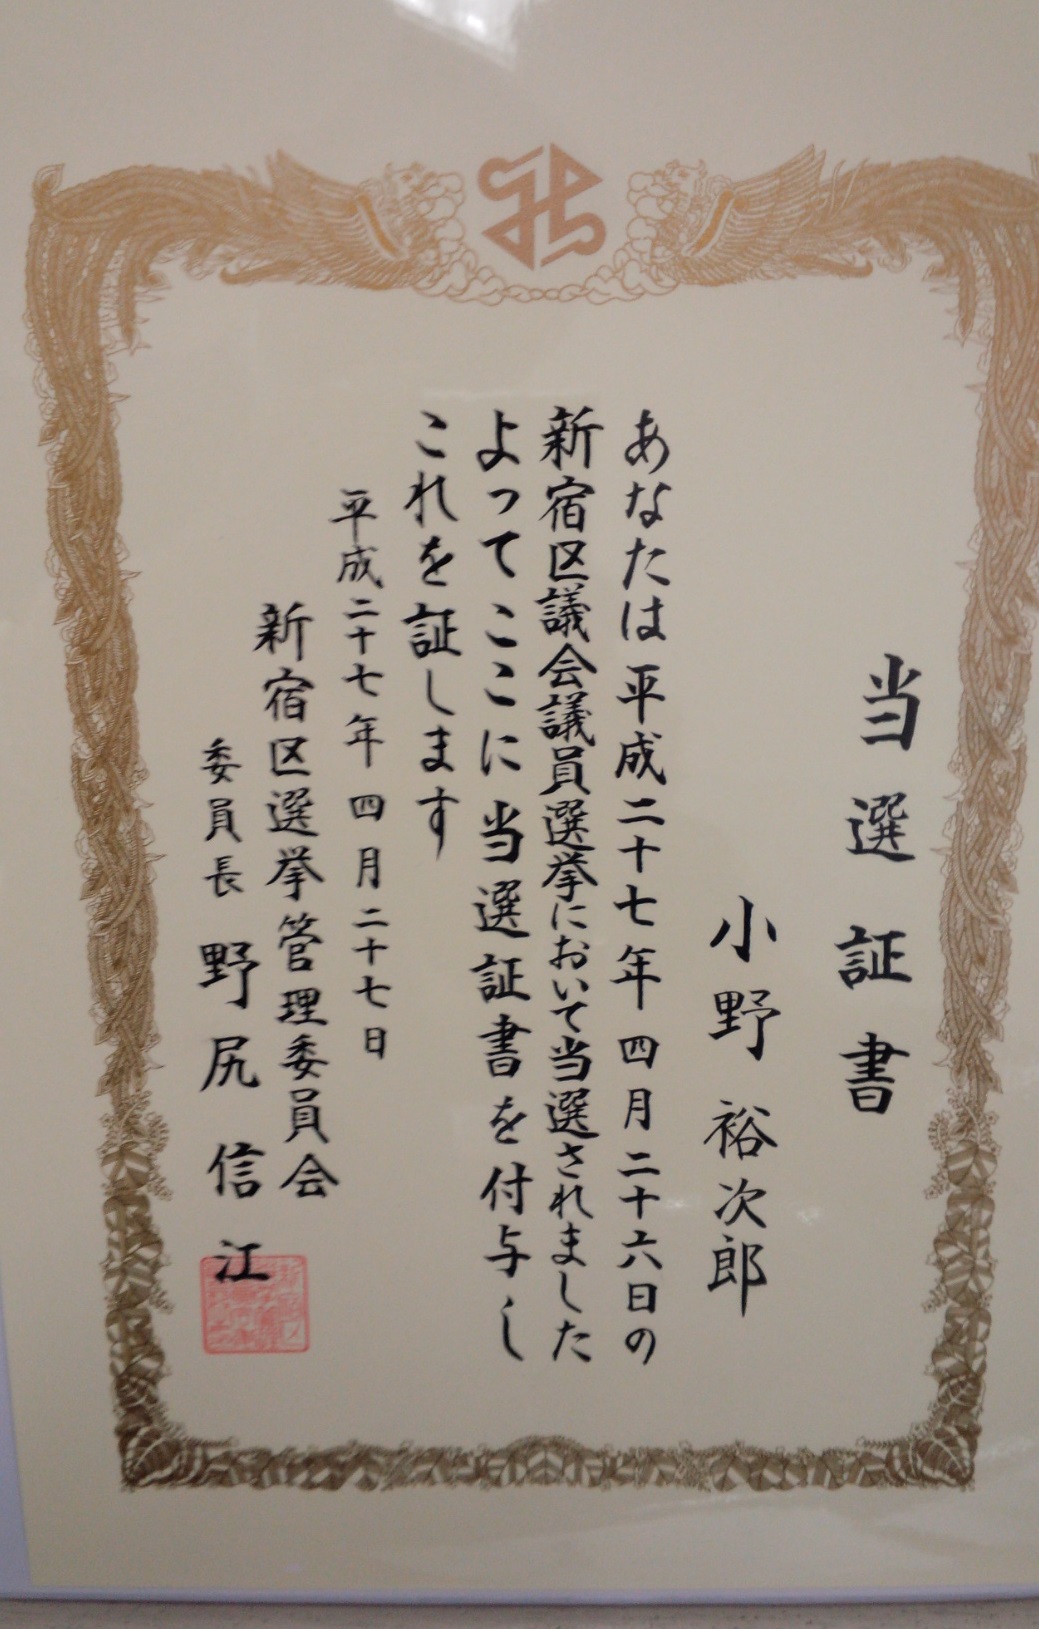 当選証書
小野裕次郎
あなたは平成二十七年四月二十六日の
新宿区議会議員選挙において当選されました
よってここに当選証書を付与し
これを証します
平成二十七年四月二十七日
新宿区選挙管理委員会
委員長 野尻信江